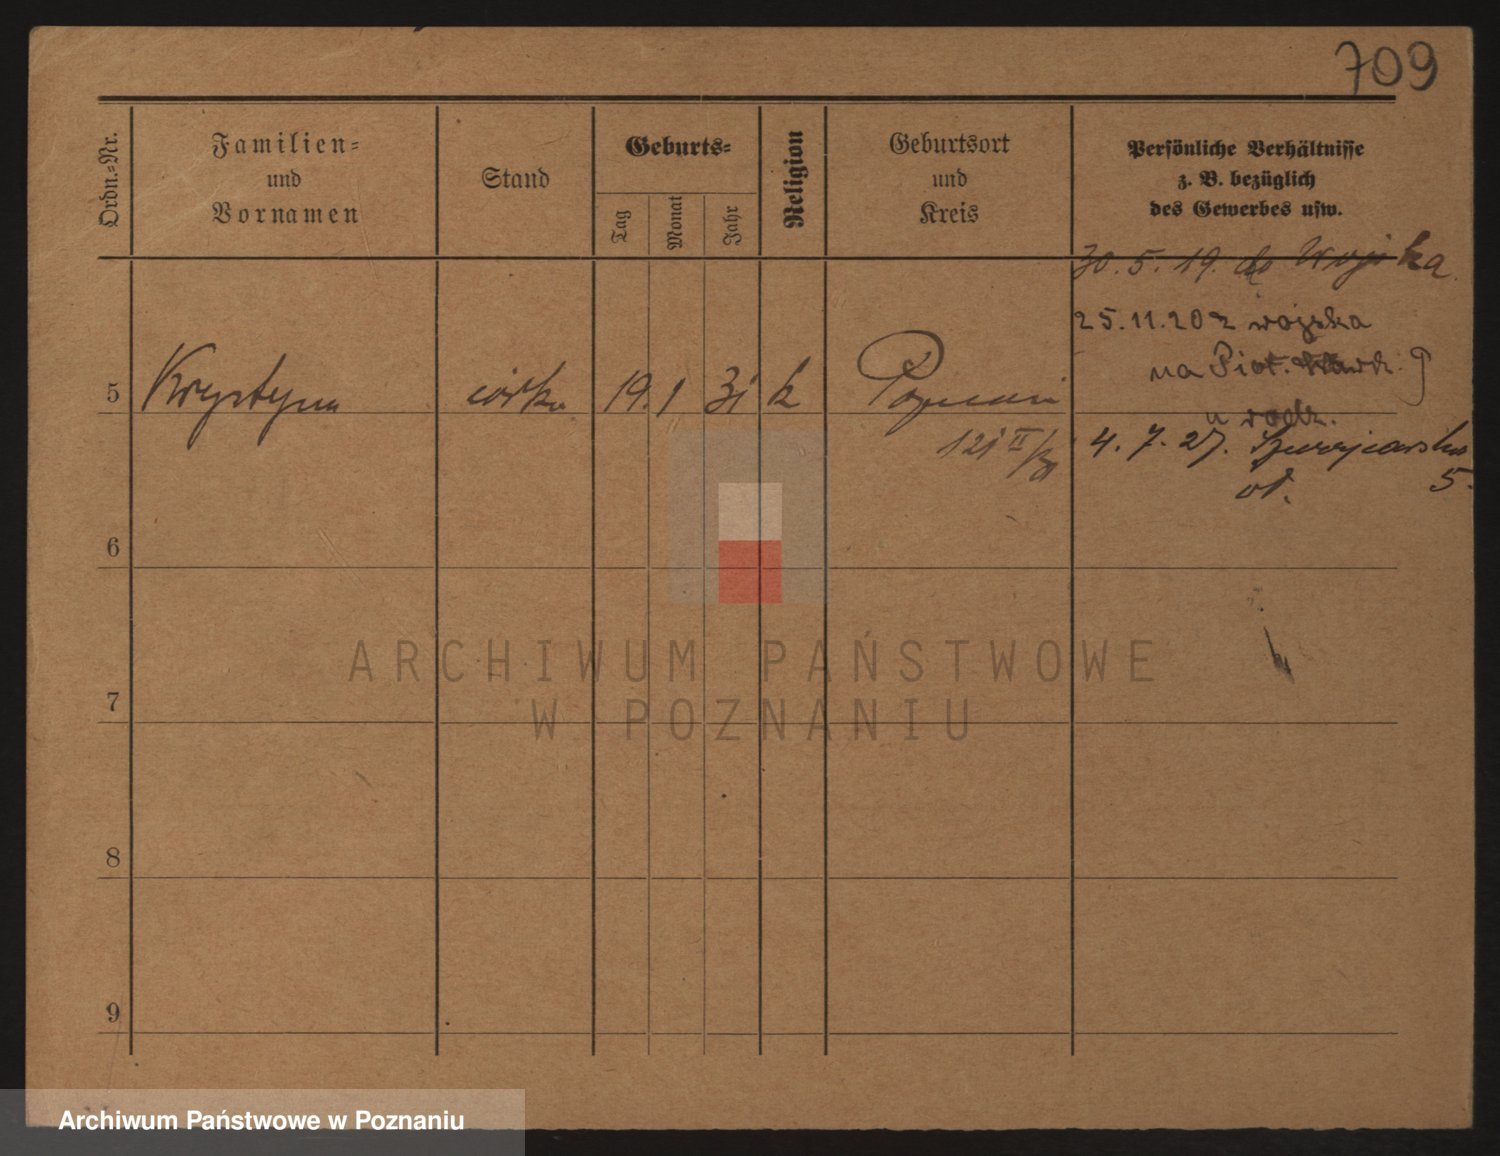 709
Ordn.-Nr.
Familien-
und
Vornamen
Stand
Geburts-
Tag
Monat
Jahr
Religion
Geburtsort
und
Kreis
Persönliche Verhältnisse
z. B. bezüglich
des Gewerbes usw.
30. 5. 19. do Wojska
25.11.20 z wojska
na Piotr.
u rodz.
5 Krystyna córka 19. 1 31 k Poznań
4. 7. 27.
5.
6
7
8
9
ARCHIWUM PAŃSTWOWE
W POZNANIU
Archiwum Państwowe w Poznaniu